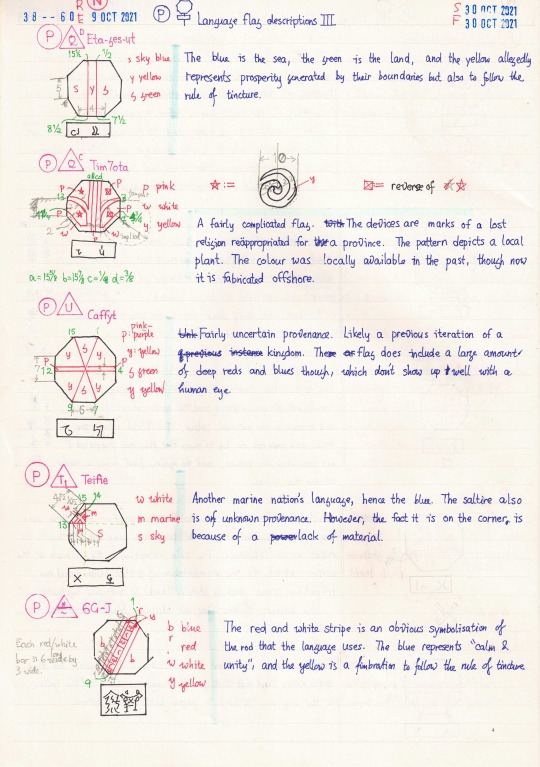 38--60
R
E
9 OCT 2021
N
P
Language flag descriptions III
S 30 OCT 2021
F 30 OCT 2021
P Q D Eta-ges-ut
15½ ½
s sky blue
y yellow
g green
5
S Y G
4
8½ 7½
The blue is the sea, the green is the land, and the yellow allegedly
represents prosperity generated by their boundaries but also to follow the
rule of tincture.
P Q C Tim7ota
abcd
p pink
w white
y yellow
:=
10
y
= reverse of
A fairly complicated flag. The devices are marks of a lost
religion reappropriated for a province. The pattern depicts a local
plant. The colour was locally available in the past, though now
it is fabricated offshore.
P U Caffyt
15 1
pink-
p: purple
y: yellow
g green
y yellow
7 12 4
9 6 7
Fairly uncertain provenance. Likely a previous iteration of a
kingdom. The flag does include a large amount
of deep reds and blues though, which don't show up well with a
human eye
P T₁ Teifie
15 14
13
m
S
w white
m marine
s sky
Another marine nation's language, hence the blue. The saltire also
is of unknown provenance. However, the fact it is on the corner, is
because of a lack of material.
P 6G-J
1
r
y
b
b
9
b blue
r red
w white
y yellow
Each red/white
bar is 6 wide by
3 wide.
The red and white stripe is an obvious symbolisation of
the rod that the language uses. The blue represents "calm &
unity", and the yellow is a fimbration to follow the rule of tincture